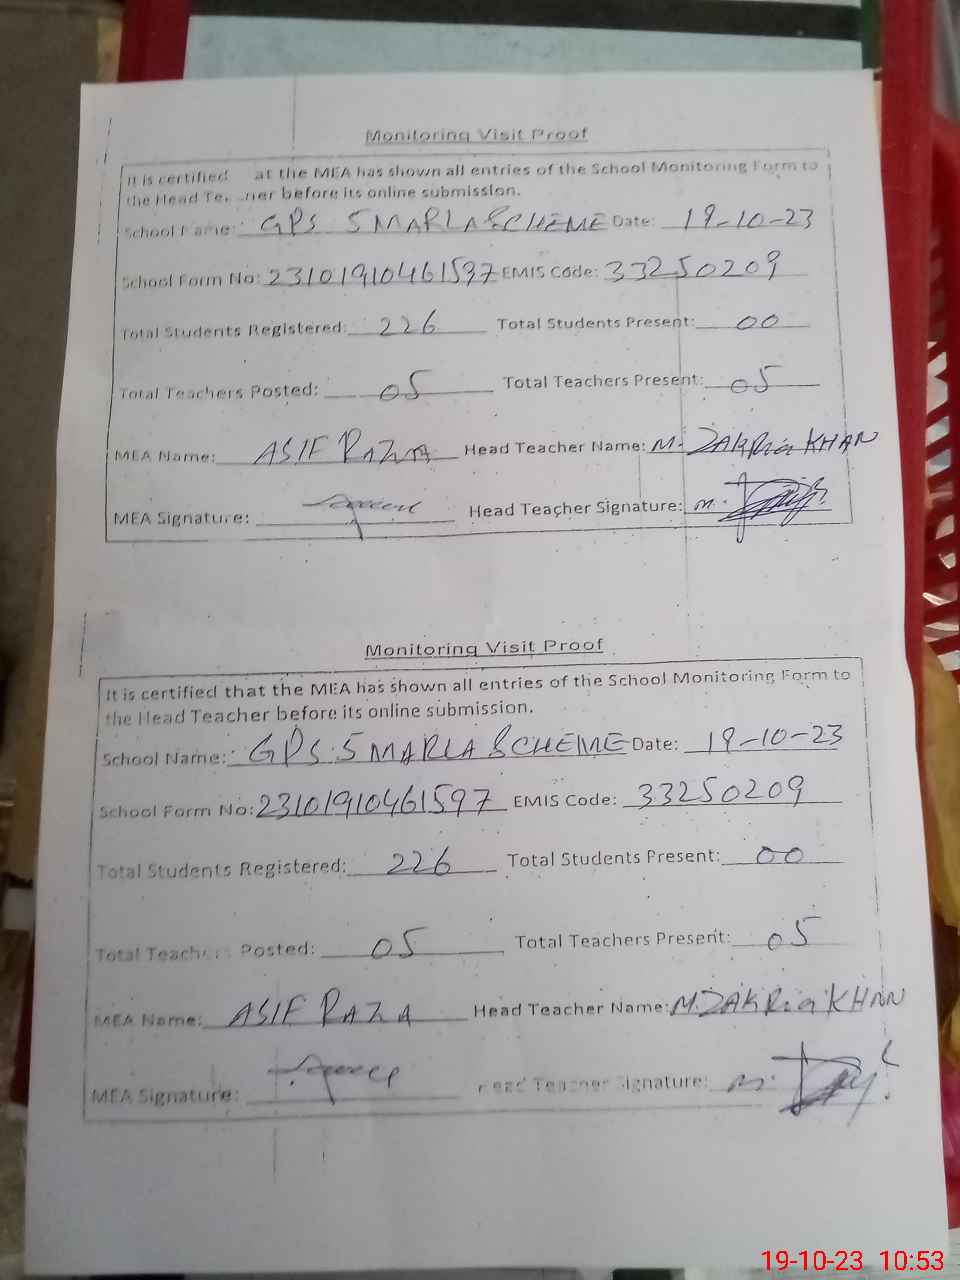 Monitoring Visit Proof
It is certified at the MEA has shown all entries of the School Monitoring Form to
the Head Te ner before its online submission.
School Name: GPS 5 MARLA SCHEME Date: 19-10-23
School Form No: 23101910461597 EMIS Code: 33250209
Total Students Registered: 226 Total Students Present: 00
Total Teachers Posted: 05 Total Teachers Present: 05
MEA Name: ASIF RAZA Head Teacher Name: M. ZAKRia KHAN
MEA Signature: Head Teacher Signature: m.
Monitoring Visit Proof
It is certified that the MEA has shown all entries of the School Monitoring Form to
the Head Teacher before its online submission.
School Name: GPS 5 MARLA SCHEME Date: 19-10-23
School Form No: 23101910461597 EMIS Code: 33250209
Total Students Registered: 226 Total Students Present: 00
Total Teachers Posted: 05 Total Teachers Present: 05
MEA Name: ASIF RAZA Head Teacher Name: M. ZAKRia KHAN
MEA Signature: Head Teacher Signature: m.
19-10-23 10:53